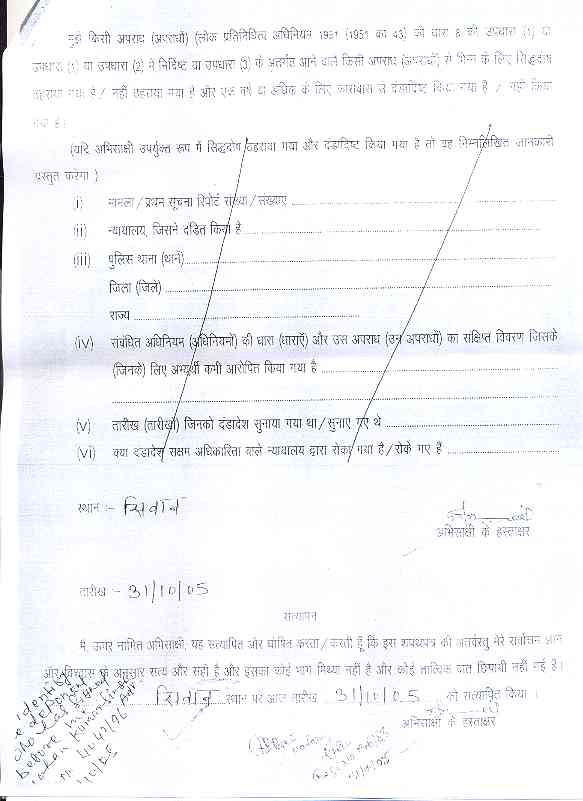 मुझे किसी अपराध (अपराधों) (लोक प्रतिनिधित्व अधिनियम 1951 (1951 का 43) की धारा 8 की उपधारा (1) या
उपधारा (1) या उपधारा (2) में निर्दिष्ट या उपधारा (3) के अंतर्गत आने वाले किसी अपराध (अपराधों) से भिन्न के लिए सिद्धदोष
ठहराया गया है / नहीं ठहराया गया है और एक वर्ष या अधिक के लिए कारावास से दंडादिष्ट किया गया है / नहीं किया
गया है।
(यदि अभिसाक्षी उपर्युक्त रूप में सिद्धदोष ठहराया गया और दंडादिष्ट किया गया है तो वह निम्नलिखित जानकारी
प्रस्तुत करेगा )
(i) मामला / प्रथम सूचना रिपोर्ट संख्या / संख्याएं
(ii) न्यायालय, जिसने दंडित किया है
(iii) पुलिस थाना (थाने)
जिला (जिले)
राज्य
(iv) संबंधित अधिनियम (अधिनियमों) की धारा (धाराएँ) और उस अपराध (उन अपराधों) का संक्षिप्त विवरण जिसके
(जिनके) लिए अभ्यर्थी कभी आरोपित किया गया है
(v) तारीख (तारीखों) जिनको दंडादेश सुनाया गया था / सुनाए गए थे
(vi) क्या दंडादेश सक्षम अधिकारिता वाले न्यायालय द्वारा रोका गया है / रोके गए हैं
स्थान :- सिवान
अभिसाक्षी के हस्ताक्षर
तारीख :- 31/10/05
सत्यापन
मैं ऊपर नामित अभिसाक्षी, यह सत्यापित और घोषित करता / करती हूँ कि इस शपथपत्र की अंतर्वस्तु मेरे सर्वोत्तम ज्ञान
और विश्वास के अनुसार सत्य और सही है और इसका कोई भाग मिथ्या नहीं है और कोई तात्विक बात छिपायी नहीं गई है।
सिवान स्थान पर आज तारीख 31/10/05 को सत्यापित किया ।
अभिसाक्षी के हस्ताक्षर
identified
deponent
who has
before me